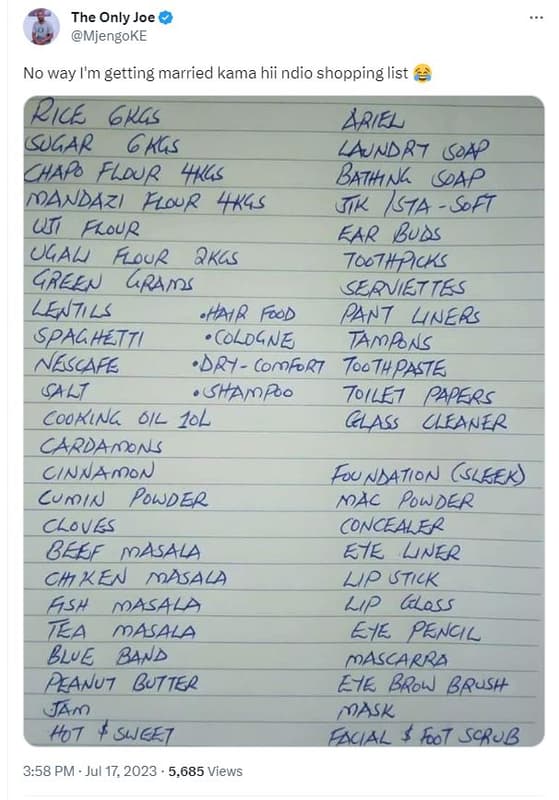 The Only Joe
@MjengoKE
No way I'm getting married kama hii ndio shopping list 😂
RICE 6KGS
SUGAR 6KGS
CHAPO FLOUR 4KGS
MANDAZI FLOUR 4KGS
UJI FLOUR
UGALI FLOUR 2KGS
GREEN GRAMS
LENTILS
SPAGHETTI
NESCAFE
SALT
COOKING OIL 10L
CARDAMONS
CINNAMON
CUMIN POWDER
CLOVES
BEEF MASALA
CHIKEN MASALA
FISH MASALA
TEA MASALA
BLUE BAND
PEANUT BUTTER
JAM
HOT & SWEET
•HAIR FOOD
•COLOGNE
•DRY-COMFORT
•SHAMPOO
ARIEL
LAUNDRY SOAP
BATHING SOAP
JIK /STA-SOFT
EAR BUDS
TOOTHPICKS
SERVIETTES
PANT LINERS
TAMPONS
TOOTHPASTE
TOILET PAPERS
GLASS CLEANER
FOUNDATION (SLEEK)
MAC POWDER
CONCEALER
EYE LINER
LIP STICK
LIP GLOSS
EYE PENCIL
MASCARRA
EYE BROW BRUSH
MASK
FACIAL & FOOT SCRUB
3:58 PM · Jul 17, 2023 · 5,685 Views